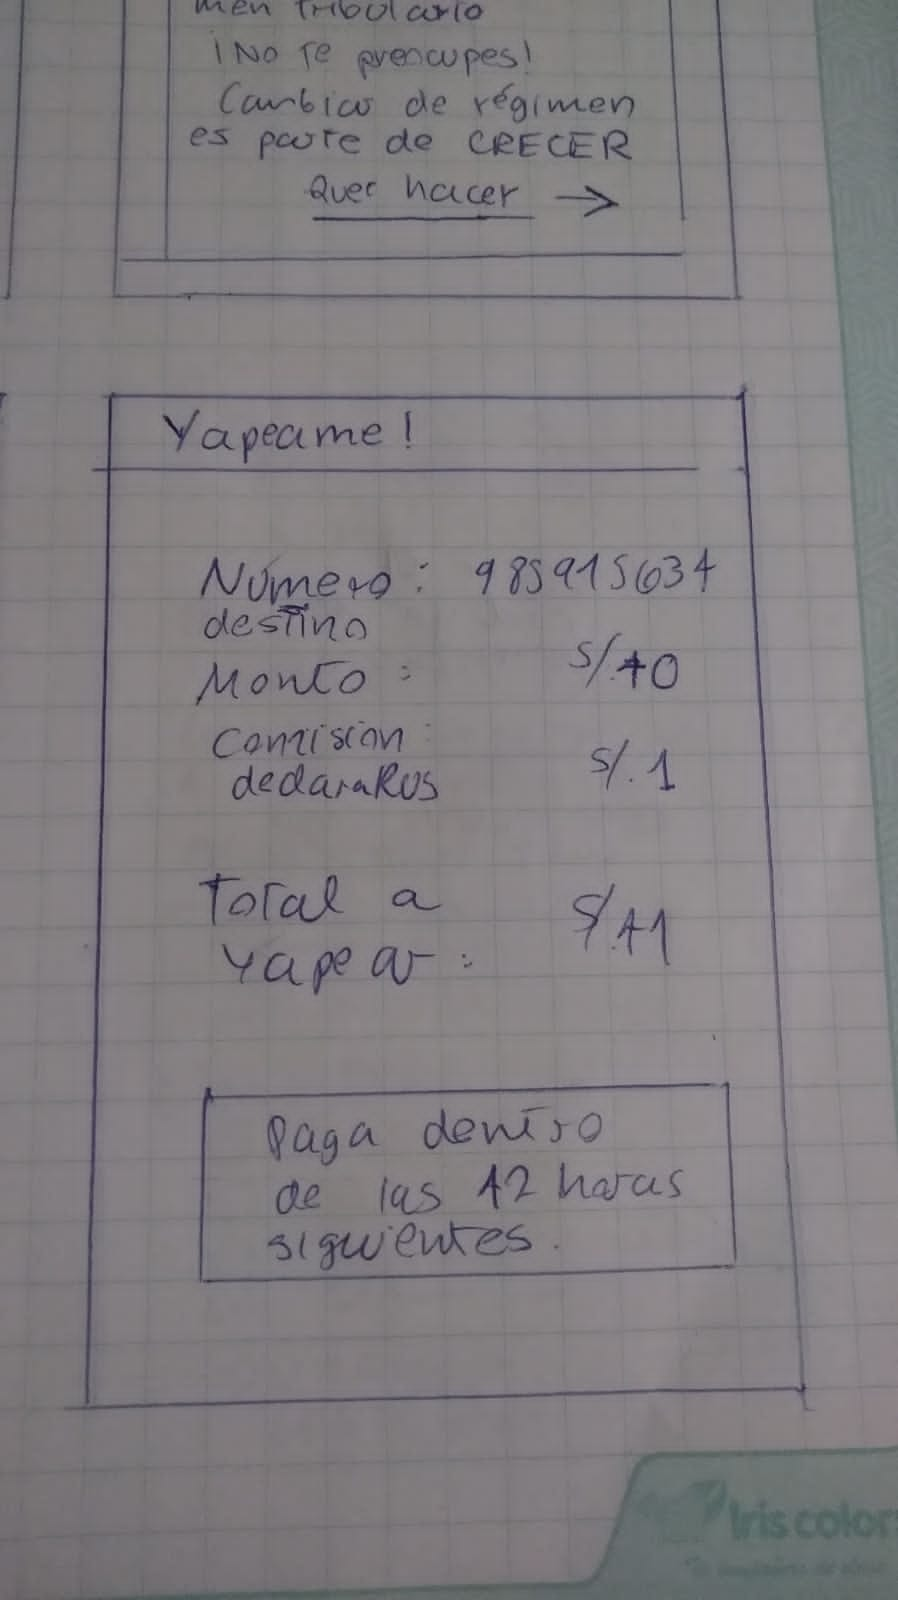 men tributario
¡No te preocupes!
Cambiar de régimen
es parte de CRECER
Quer hacer →
Yapeame!
Número: 985915634
destino
Monto: S/.70
Comision:
declaraRUS S/.1
Total a
yapear: S/.71
Paga dentro
de las 72 horas
siguientes.
Iris color